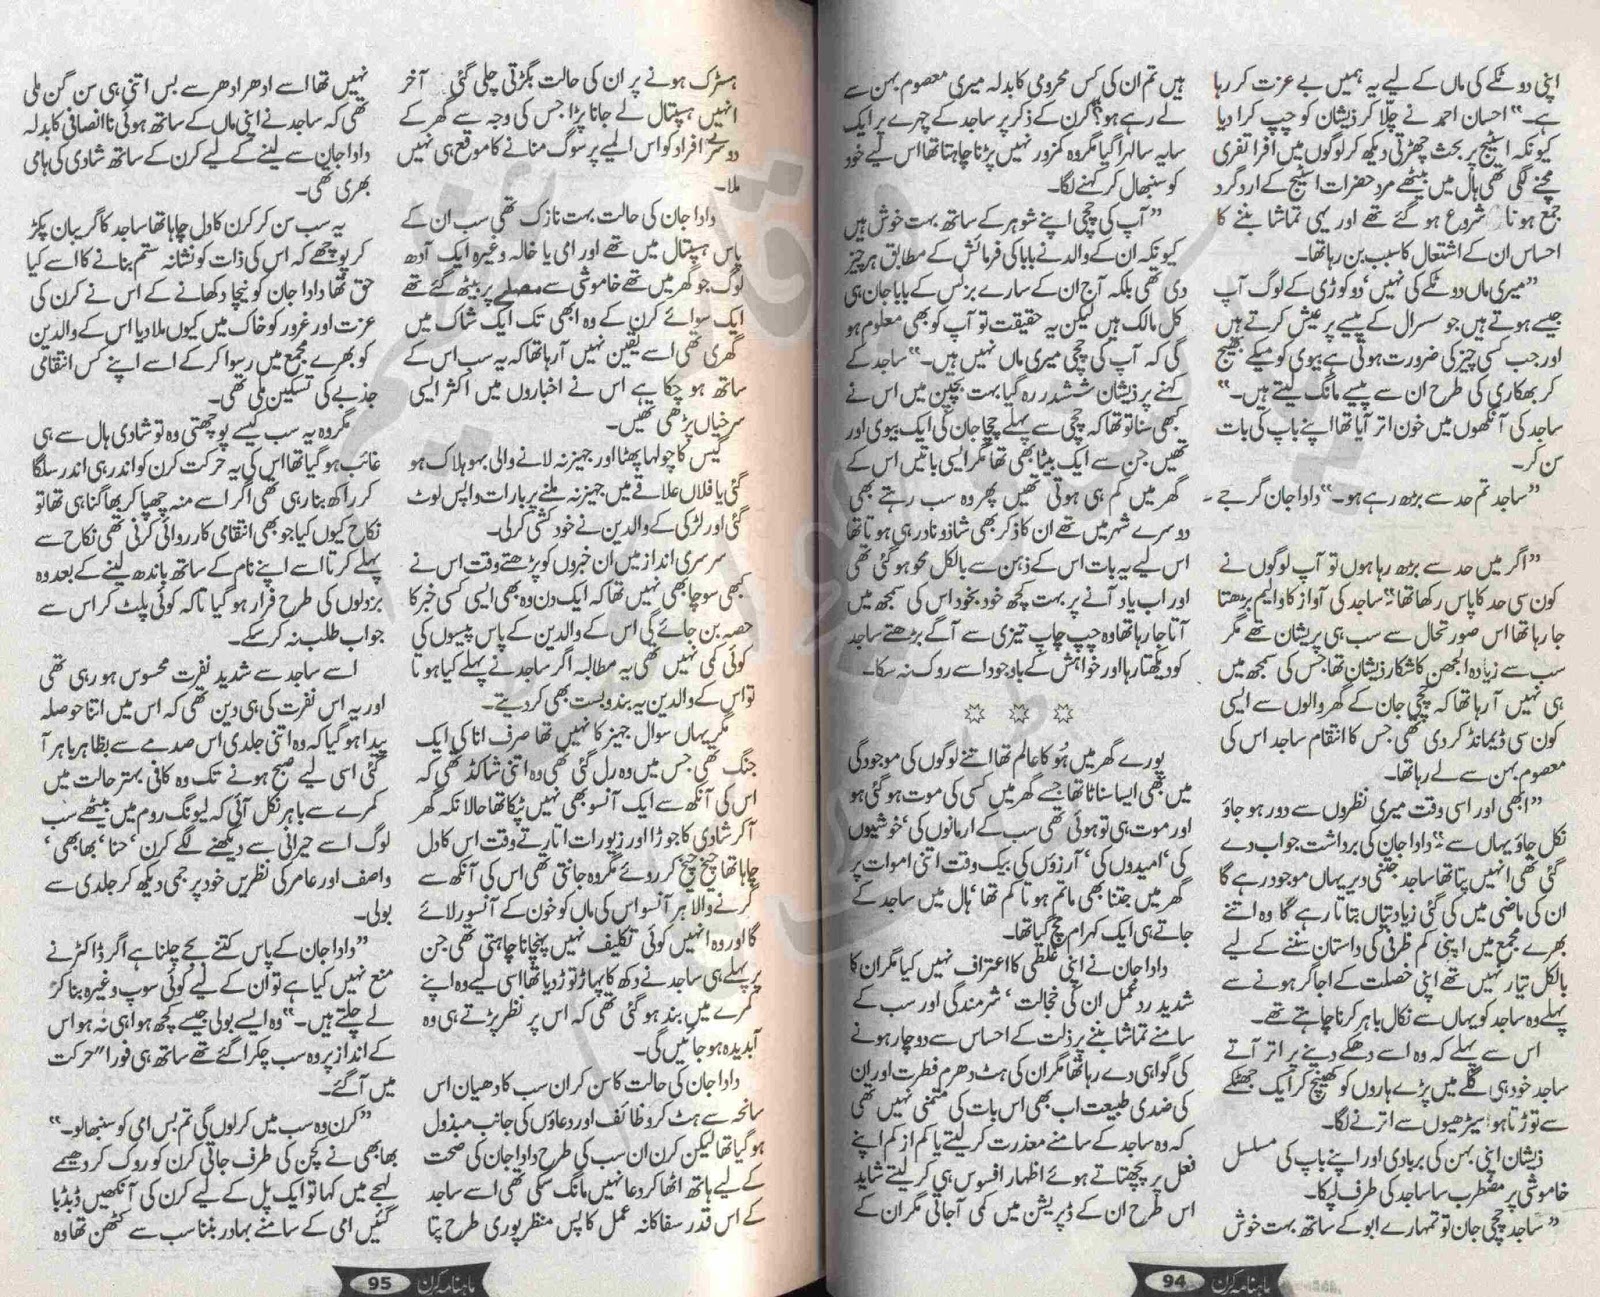 اپنی دو ٹکے کی ماں کے لیے یہ ہمیں بے عزت کر رہا
ہے۔“ احسان احمد نے چلّا کر ذیشان کو چپ کرا دیا
کیونکہ اسٹیج پر بحث چھڑتی دیکھ کر لوگوں میں افراتفری
مچنے لگی تھی ہال میں بیٹھے مرد حضرات اسٹیج کے ارد گرد
جمع ہونا شروع ہو گئے تھے اور یہی تماشا بننے کا
احساس ان کے اشتعال کا سبب بن رہا تھا۔
”میری ماں دو ٹکے کی نہیں‘ دو کوڑی کے لوگ آپ
جیسے ہوتے ہیں جو سسرال کے پیسے پر عیش کرتے ہیں
اور جب کسی چیز کی ضرورت ہوتی ہے بیوی کو میکے بھیج
کر بھکاری کی طرح ان سے پیسے مانگ لیتے ہیں۔“
ساجد کی آنکھوں میں خون اتر آیا تھا اپنے باپ کی بات
سن کر۔
”ساجد تم حد سے بڑھ رہے ہو۔“ دادا جان گرجے۔
”اگر میں حد سے بڑھ رہا ہوں تو آپ لوگوں نے
کون سی حد کا پاس رکھا تھا؟“ ساجد کی آواز کا والیم بڑھتا
جا رہا تھا اس صورتحال سے سب ہی پریشان تھے مگر
سب سے زیادہ الجھن کا شکار ذیشان تھا جس کی سمجھ میں
ہی نہیں آ رہا تھا کہ چچی جان کے گھر والوں سے ایسی
کون سی ڈیمانڈ کر دی تھی جس کا انتقام ساجد اس کی
معصوم بہن سے لے رہا تھا۔
”ابھی اور اسی وقت میری نظروں سے دور ہو جاؤ
نکل جاؤ یہاں سے۔“ دادا جان کی برداشت جواب دے
گئی تھی انہیں پتا تھا ساجد جتنی دیر یہاں موجود رہے گا
ان کی ماضی میں کی گئی زیادتیاں بتاتا رہے گا وہ اتنے
بھرے مجمع میں اپنی کم ظرفی کی داستان سننے کے لیے
بالکل تیار نہیں تھے اپنی خصلت کے اجاگر ہونے سے
پہلے وہ ساجد کو یہاں سے نکال باہر کرنا چاہتے تھے۔
اس سے پہلے کہ وہ اسے دھکے دینے پر اتر آتے
ساجد خود ہی گلے میں پڑے ہاروں کو کھینچ کر ایک جھٹکے
سے توڑتا ہوا سیڑھیوں سے اترنے لگا۔
ذیشان اپنی بہن کی بربادی اور اپنے باپ کی مسلسل
خاموشی پر مضطرب سا ساجد کی طرف لپکا۔
”ساجد چچی جان تو تمہارے ابو کے ساتھ بہت خوش
ہیں تم ان کی کس محرومی کا بدلہ میری معصوم بہن سے
لے رہے ہو؟“ کرن کے ذکر پر ساجد کے چہرے پر ایک
سایہ سا لہرا گیا مگر وہ کمزور نہیں پڑنا چاہتا تھا اس لیے خود
کو سنبھال کر کہنے لگا۔
”آپ کی چچی اپنے شوہر کے ساتھ بہت خوش ہیں
کیونکہ ان کے والد نے بابا کی فرمائش کے مطابق ہر چیز
دی تھی بلکہ آج ان کے سارے بزنس کے بابا جان ہی
کل مالک ہیں لیکن یہ حقیقت تو آپ کو بھی معلوم ہو
گی کہ آپ کی چچی میری ماں نہیں ہیں۔“ ساجد کے
کہنے پر ذیشان ششدر رہ گیا بہت بچپن میں اس نے
کبھی سنا تو تھا کہ چچی سے پہلے چچا جان کی ایک بیوی اور
تھیں جن سے ایک بیٹا بھی تھا مگر ایسی باتیں اس کے
گھر میں کم ہی ہوتی تھیں پھر وہ سب رہتے بھی
دوسرے شہر میں تھے ان کا ذکر بھی شاذ و نادر ہی ہوتا تھا
اس لیے یہ بات اس کے ذہن سے بالکل محو ہو گئی تھی
اور اب یاد آنے پر بہت کچھ خود بخود اس کی سمجھ میں
آتا جا رہا تھا وہ چپ چاپ تیزی سے آگے بڑھتے ساجد
کو دیکھتا رہا اور خواہش کے باوجود اسے روک نہ سکا۔
پورے گھر میں ہُو کا عالم تھا اتنے لوگوں کی موجودگی
میں بھی ایسا سناٹا تھا جیسے گھر میں کسی کی موت ہو گئی ہو
اور موت ہی تو ہوئی تھی سب کے ارمانوں کی‘ خوشیوں
کی‘ امیدوں کی‘ آرزوؤں کی بیک وقت اتنی اموات پر
گھر میں جتنا بھی ماتم ہوتا کم تھا‘ ہال میں ساجد کے
جاتے ہی ایک کہرام مچ گیا تھا۔
دادا جان نے اپنی غلطی کا اعتراف نہیں کیا مگر ان کا
شدید ردعمل ان کی خجالت‘ شرمندگی اور سب کے
سامنے تماشا بننے پر ذلت کے احساس سے دوچار ہونے
کی گواہی دے رہا تھا مگر ان کی ہٹ دھرم فطرت اور ان
کی ضدی طبیعت اب بھی اس بات کی متمنی نہیں تھی
کہ وہ ساجد کے سامنے معذرت کر لیتے یا کم از کم اپنے
فعل پر پچھتاتے ہوئے اظہار افسوس ہی کر لیتے شاید
اس طرح ان کے ڈپریشن میں کمی آ جاتی مگر ان کے
ماہنامہ کرن 94
ہسٹرک ہونے پر ان کی حالت بگڑتی چلی گئی آخر
انہیں ہسپتال لے جانا پڑا جس کی وجہ سے گھر کے
دوسرے افراد کو اس المیے پر سوگ منانے کا موقع ہی نہیں
ملا۔
دادا جان کی حالت بہت نازک تھی سب ان کے
پاس ہسپتال میں تھے اور امی یا خالہ وغیرہ ایک آدھ
لوگ جو گھر میں تھے خاموشی سے مصلے پر بیٹھ گئے تھے
ایک سوائے کرن کے وہ ابھی تک ایک شاک میں
گھری تھی اسے یقین نہیں آ رہا تھا کہ یہ سب اس کے
ساتھ ہو چکا ہے اس نے اخباروں میں اکثر ایسی
سرخیاں پڑھی تھیں۔
گیس کا چولہا پھٹا اور جہیز نہ لانے والی بہو ہلاک ہو
گئی یا فلاں علاقے میں جہیز نہ ملنے پر بارات واپس لوٹ
گئی اور لڑکی کے والدین نے خودکشی کر لی۔
سرسری انداز میں ان خبروں کو پڑھتے وقت اس نے
کبھی سوچا بھی نہیں تھا کہ ایک دن وہ بھی ایسی کسی خبر کا
حصہ بن جائے گی اس کے والدین کے پاس پیسوں کی
کوئی کمی نہیں تھی یہ مطالبہ اگر ساجد نے پہلے کیا ہوتا
تو اس کے والدین یہ بندوبست بھی کر دیتے۔
مگر یہاں سوال جہیز کا نہیں تھا صرف انا کی ایک
جنگ تھی جس میں وہ رل گئی تھی وہ اتنی شاکڈ تھی کہ
اس کی آنکھ سے ایک آنسو بھی نہیں ٹپکا تھا حالانکہ گھر
آ کر شادی کا جوڑا اور زیورات اتارتے وقت اس کا دل
چاہا تھا چیخ چیخ کر روئے مگر وہ جانتی تھی اس کی آنکھ سے
گرنے والا ہر آنسو اس کی ماں کو خون کے آنسو رلائے
گا اور وہ انہیں کوئی تکلیف نہیں پہنچانا چاہتی تھی جن
پر پہلے ہی ساجد نے دکھ کا پہاڑ توڑ دیا تھا اسی لیے وہ اپنے
کمرے میں بند ہو گئی تھی کہ اس پر نظر پڑتے ہی وہ
آبدیدہ ہو جائیں گی۔
دادا جان کی حالت کا سن کر ان سب کا دھیان اس
سانحہ سے ہٹ کر وظائف اور دعاؤں کی جانب مبذول
ہو گیا تھا لیکن کرن ان سب کی طرح دادا جان کی صحت
کے لیے ہاتھ اٹھا کر دعا نہیں مانگ سکی تھی اسے ساجد
کے اس قدر سفاکانہ عمل کا پس منظر پوری طرح پتا
نہیں تھا اسے ادھر ادھر سے بس اتنی ہی سن گن ملی
تھی کہ ساجد نے اپنی ماں کے ساتھ ہوئی ناانصافی کا بدلہ
دادا جان سے لینے کے لیے کرن کے ساتھ شادی کی ہامی
بھری تھی۔
یہ سب سن کر کرن کا دل چاہا تھا ساجد کا گریبان پکڑ
کر پوچھے کہ اس کی ذات کو نشانہ ستم بنانے کا اسے کیا
حق تھا دادا جان کو نیچا دکھانے کے اس نے کرن کی
عزت اور غرور کو خاک میں کیوں ملا دیا اس کے والدین
کو بھرے مجمع میں رسوا کر کے اسے اپنے کس انتقامی
جذبے کی تسکین ملی تھی۔
مگر وہ یہ سب کیسے پوچھتی وہ تو شادی ہال سے ہی
غائب ہو گیا تھا اس کی یہ حرکت کرن کو اندر ہی اندر سلگا
کر راکھ بنا رہی تھی اگر اسے منہ چھپا کر بھاگنا ہی تھا تو
نکاح کیوں کیا جو بھی انتقامی کارروائی کرنی تھی نکاح سے
پہلے کرتا اسے اپنے نام کے ساتھ باندھ لینے کے بعد وہ
بزدلوں کی طرح فرار ہو گیا تاکہ کوئی پلٹ کر اس سے
جواب طلب نہ کر سکے۔
اسے ساجد سے شدید نفرت محسوس ہو رہی تھی
اور یہ اس نفرت کی ہی دین تھی کہ اس میں اتنا حوصلہ
پیدا ہو گیا کہ وہ اتنی جلدی اس صدمے سے بظاہر باہر آ
گئی اسی لیے صبح ہونے تک وہ کافی بہتر حالت میں
کمرے سے باہر نکل آئی کہ لیونگ روم میں بیٹھے سب
لوگ اسے حیرانی سے دیکھنے لگے کرن‘ حنا‘ بھابھی‘
واصف اور عامر کی نظریں خود پر جمی دیکھ کر جلدی سے
بولی۔
”دادا جان کے پاس کتنے بجے چلنا ہے اگر ڈاکٹر نے
منع نہیں کیا ہے تو ان کے لیے کوئی سوپ وغیرہ بنا کر
لے چلتے ہیں۔“ وہ ایسے بولی جیسے کچھ ہوا ہی نہ ہو اس
کے انداز پر وہ سب چکرا گئے تھے ساتھ ہی فوراً حرکت
میں آ گئے۔
”کرن وہ سب میں کر لوں گی تم بس امی کو سنبھالو۔“
بھابھی نے کچن کی طرف جاتی کرن کو روک کر دھیمے
لہجے میں کہا تو ایک پل کے لیے کرن کی آنکھیں ڈبڈبا
گئیں امی کے سامنے بہادر بننا سب سے کٹھن تھا وہ
ماہنامہ کرن 95